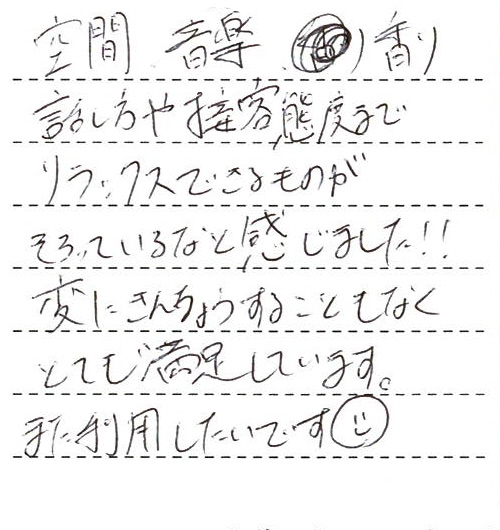 空間 音楽 り香り
話し方や接客態度まで
リラックスできるものが
そろっているなと感じました!!
変にきんちょうすることもなく
とても満足しています。
また利用したいです